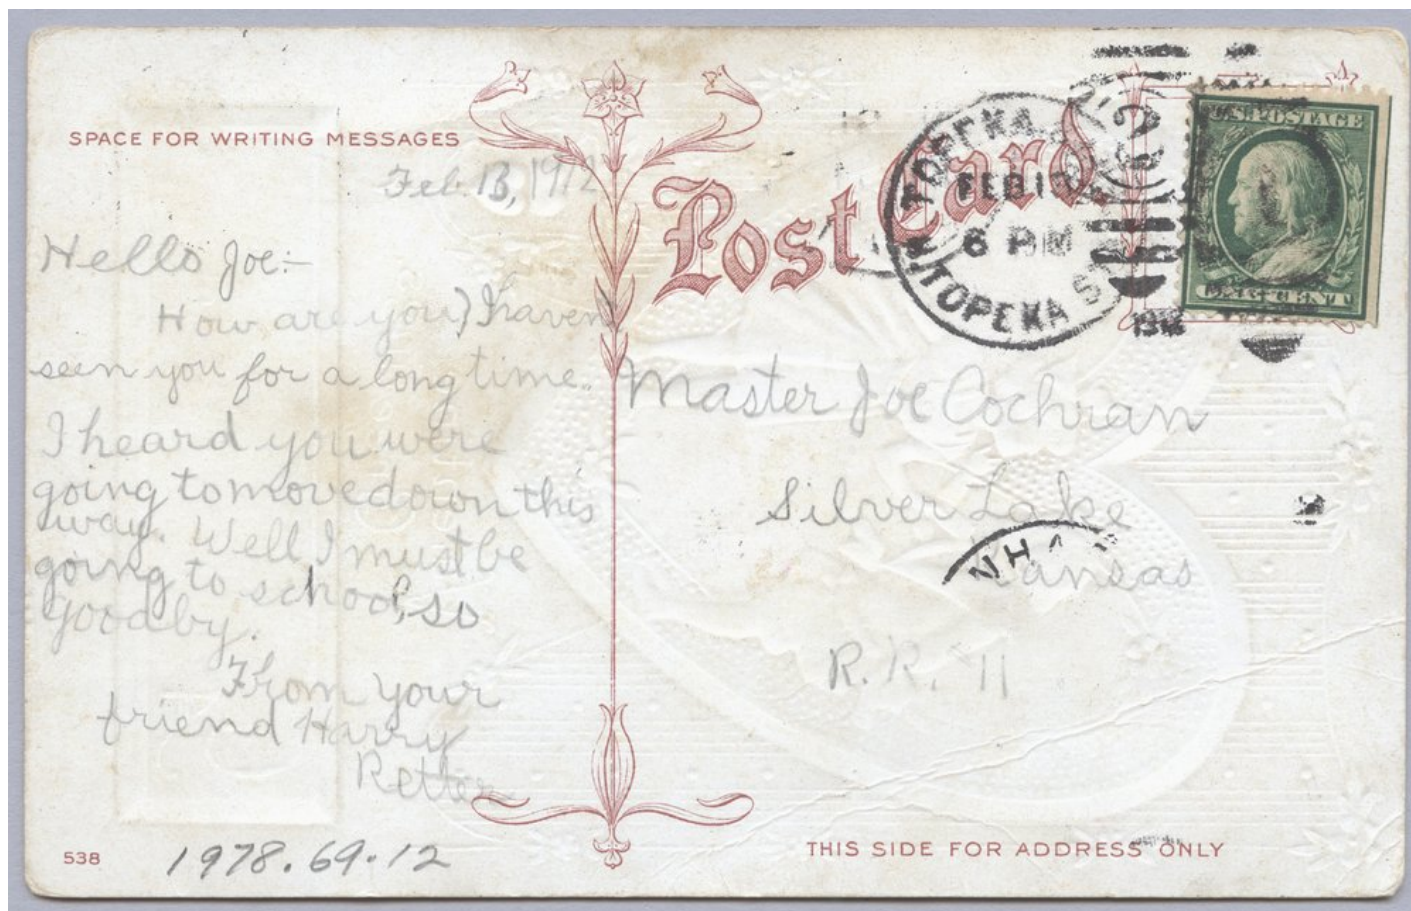 SPACE FOR WRITING MESSAGES
Feb. 13, 1912
Hello Joe:-
How are you? I haven
seen you for a long time.
I heard you were
going to move down this
way. Well I must be
going to school, so
goodby.
From your
friend Harry
Retter
538
1978.69.12
Post Card
TOPEKA,
FEB 13
6 PM
TOPEKA
1912
U.S. POSTAGE
ONE CENT
Master Joe Cochran
Silver Lake
Kansas
R.R. 11
THIS SIDE FOR ADDRESS ONLY